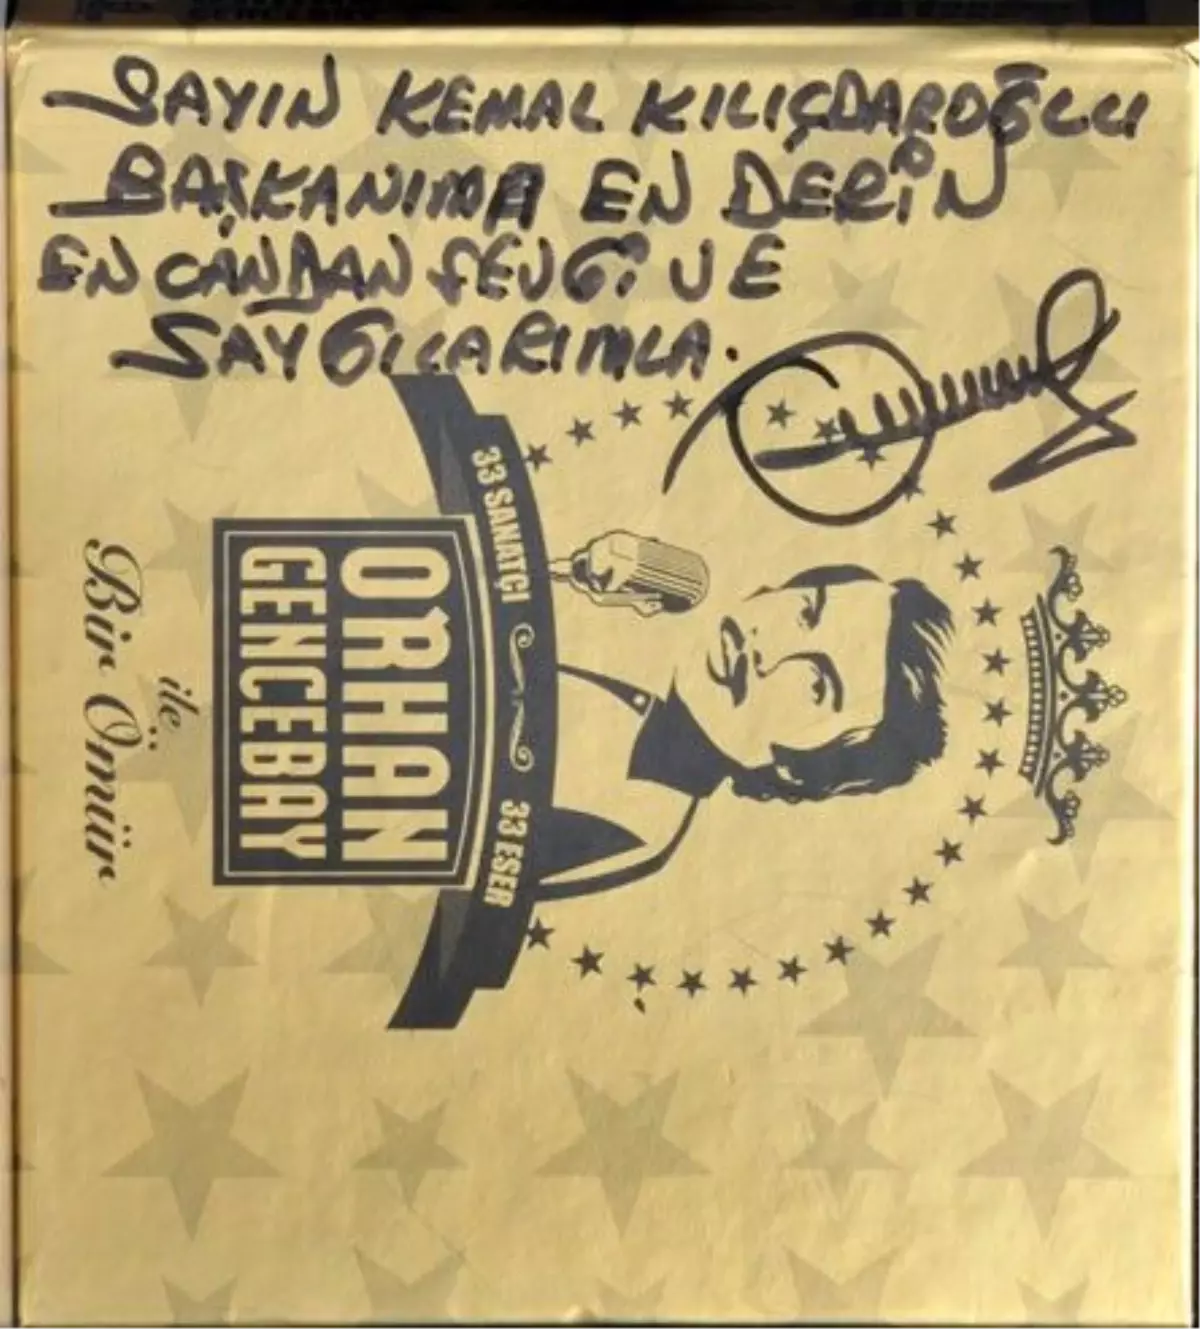 SAYIN KEMAL KILIÇDAROĞLU
BAŞKANIMA EN DERİN
EN CANDAN SEVGİ VE
SAYGILARIMLA.
33 SANATÇI 33 ESER
ORHAN
GENCEBAY
ile
Bir Ömür